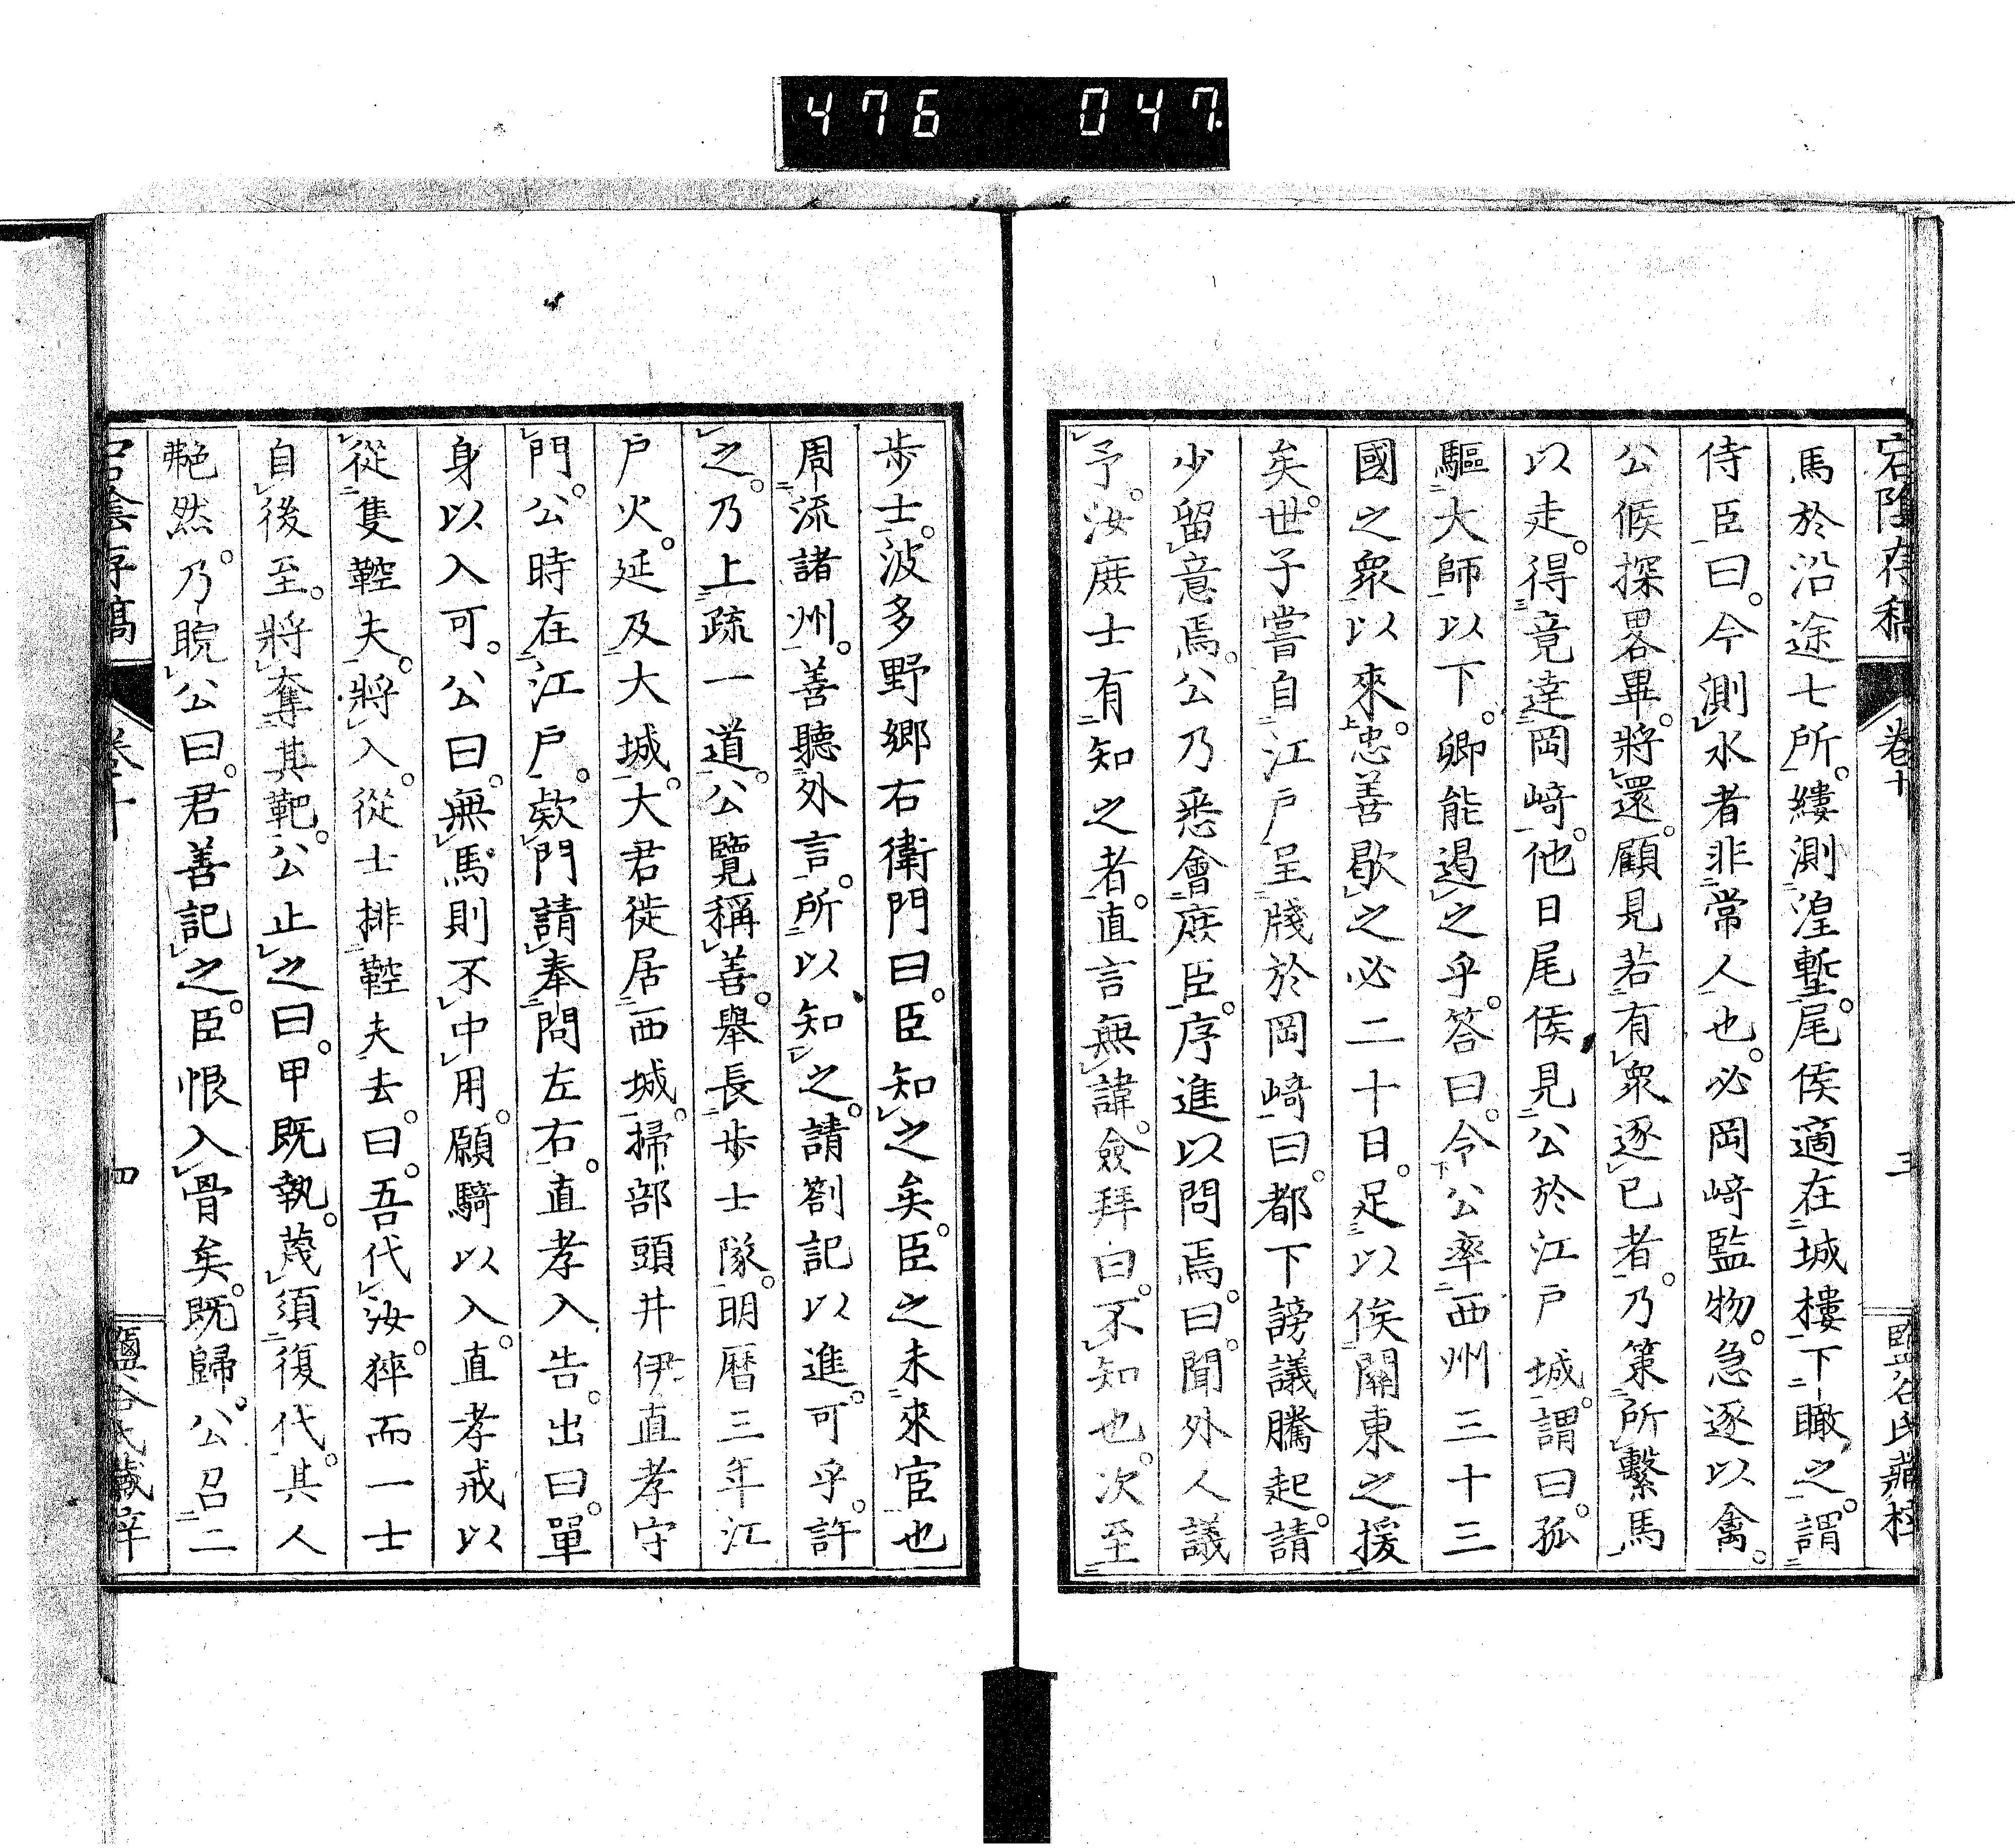 476 047
宕陰存稿 卷十 三
馬於沿途七所。縷測湟塹。尾侯適在城樓下瞰之。謂
侍臣曰。今測水者非常人也。必岡﨑監物。急逐以禽。
公候探畧畢。將還。顧見若有衆逐已者。乃策所繫馬
以走。得竟達岡﨑。他日尾侯見公於江戸城。謂曰。孤
驅大師以下。卿能遏之乎。答曰。令公率西州三十三
國之衆以來。忠善歇之必二十日。足以俟關東之援
矣。世子嘗自江戸呈牋於岡﨑曰。都下謗議騰起。請
少留意焉。公乃悉會庶臣。序進以問焉。曰。聞外人議
予。汝庶士有知之者。直言無諱。僉拜曰。不知也。次至
步士。波多野郷右衛門曰。臣知之矣。臣之未來宦也
周流諸州。善聽外言。所以知之。請劄記以進。可乎。許
之。乃上疏一道。公覽稱善。舉長步士隊。明曆三年江
戸火。延及大城。大君徙居西城。掃部頭井伊直孝守
門。公時在江戸。欵門請奉問左右。直孝入告。出曰。單
身以入可。公曰。無馬則不中用。願騎以入。直孝戒以
從隻鞚夫。將入。從士排鞚夫去。曰。吾代汝。猝而一士
自後至。將奪其靶。公止之曰。甲既執。蔑須復代。其人
艴然。乃睨公曰。君善記之。臣恨入骨矣。既歸。公召二
宕陰存稿 卷十 四